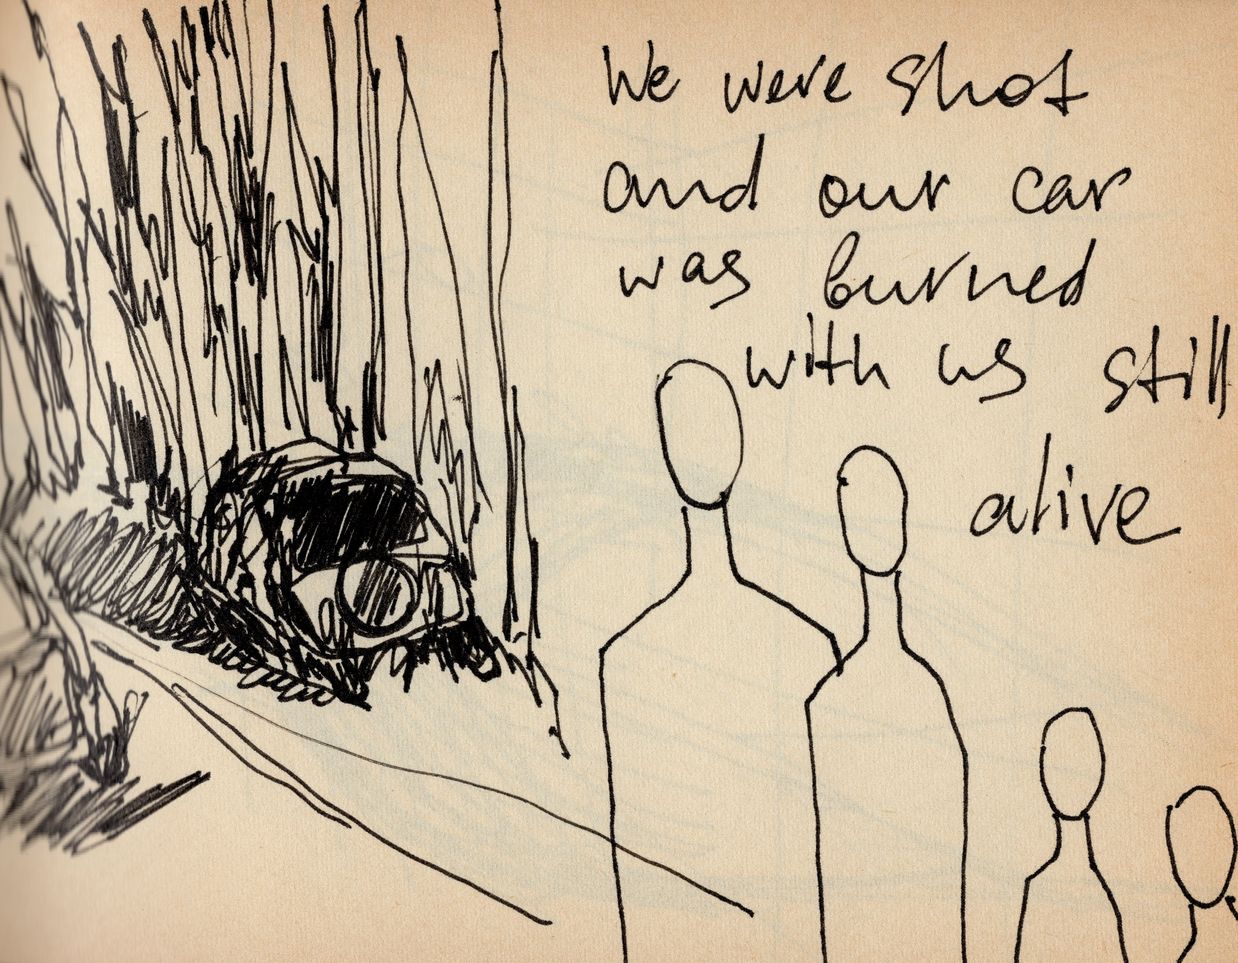 We were shot
and our car
was burned
with us still
alive